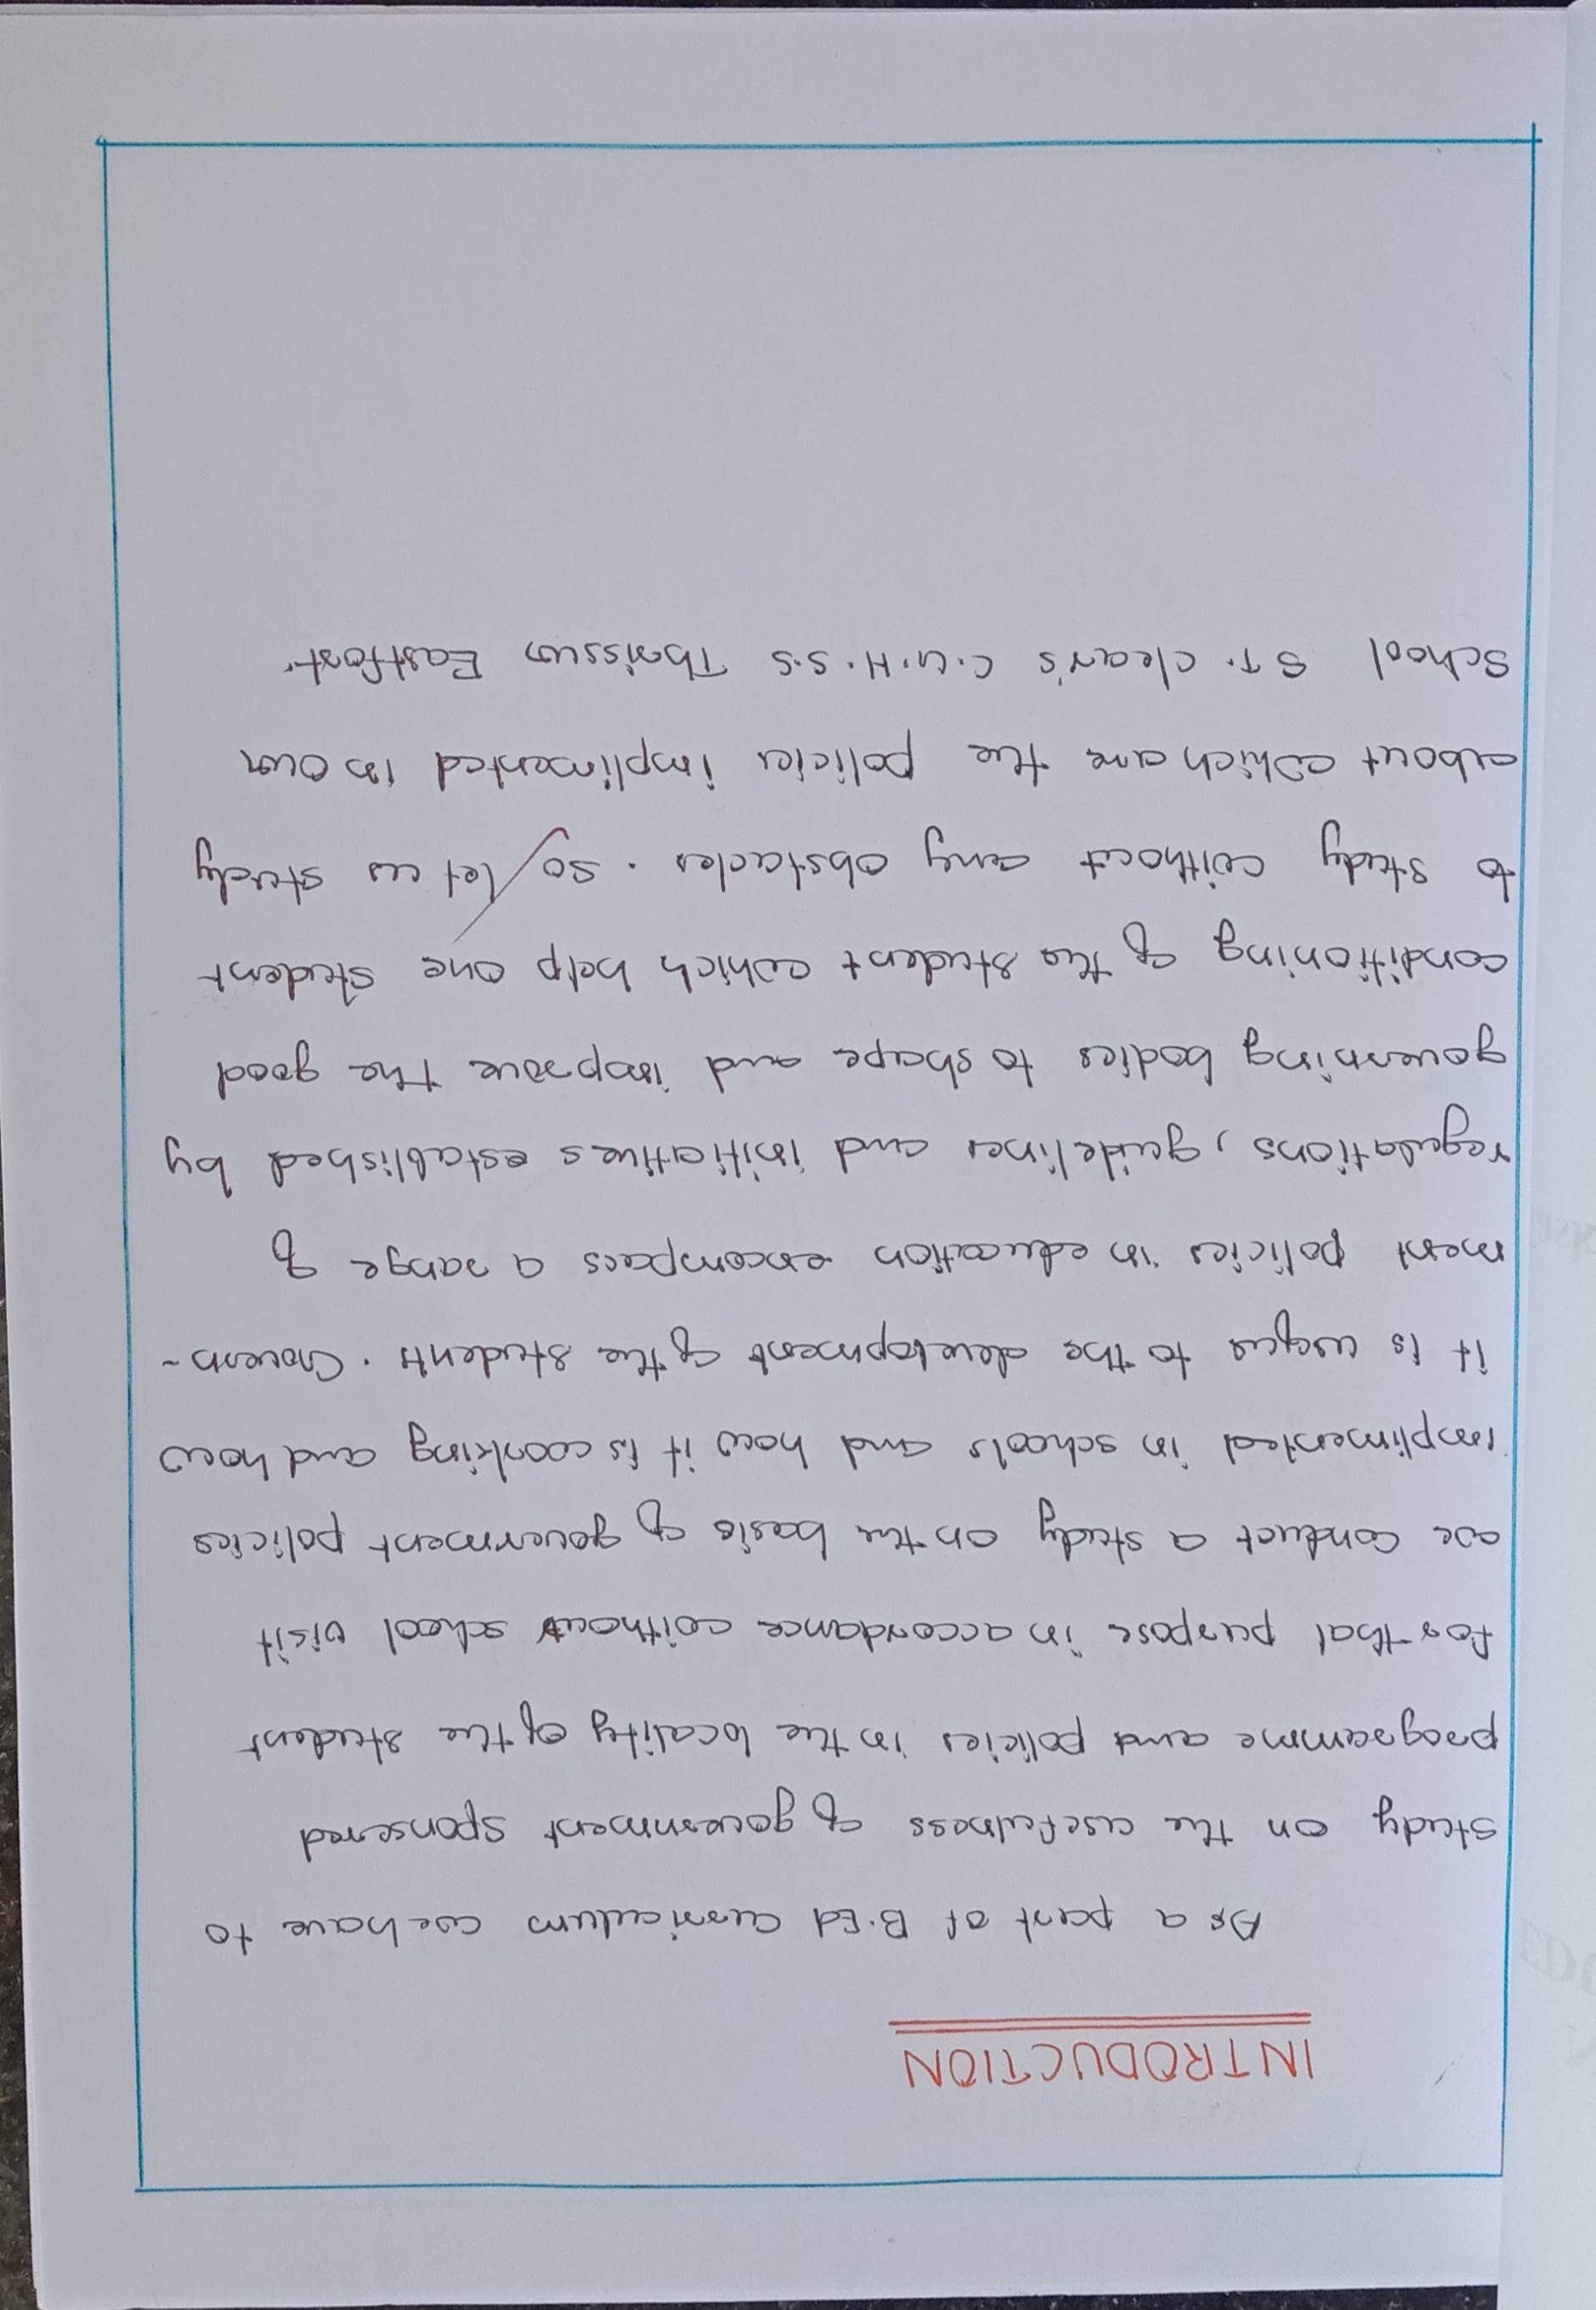 INTRODUCTION
As a part of B.Ed curriculum we have to
study on the usefulness of government sponsered
programme and policies in the locality of the student
for that purpose in accordance with our school visit
we conduct a study on the basis of government policies
implimented in schools and how it is working and how
it is to the development of the students. Govern-
ment policies in education encompass a range of
regulations, guidelines and initiatives established by
governing bodies to shape and improve the good
conditioning of the student which help one student
to study without any obstacles. So let us study
about which are the policies implimented in our
School ST. clear's C.G.H.S.S Thrissur Eastfort.